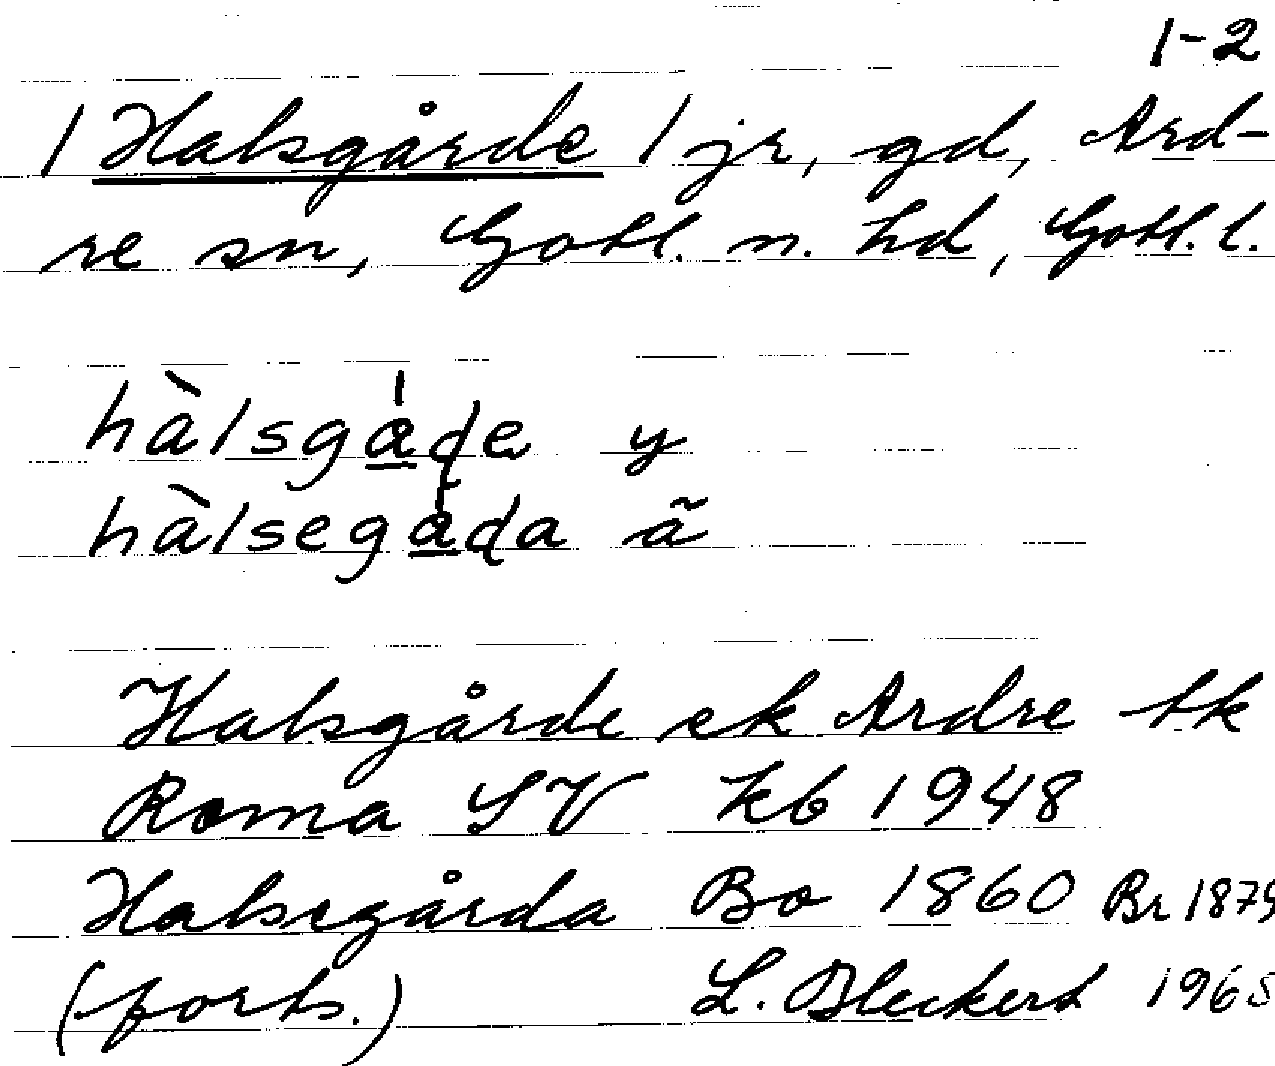 1-2
/ Halsgårde / jr, gd, Ard-
re sn, Gotl. n. hd, Gotl. l.
hàlsgǻ̲ɖe y
hàlsegǻ̲ɖa ã
Halsgårde ek Ardre tk
Roma SV kb 1948
Halsegårda Bo 1860 Br 1879
(forts.) L. Bleckert 1965